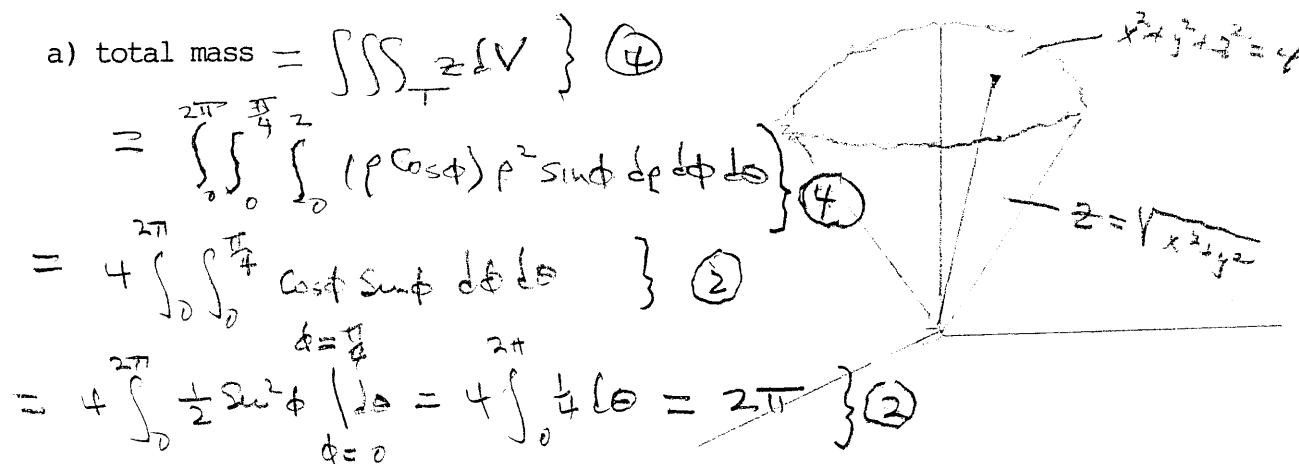 a) total mass = ∫∫∫_T z dV } ④
= ∫_0^{2π} ∫_0^{π/4} ∫_0^2 (ρ cosφ) ρ² sinφ dρ dφ dθ } ④
= 4 ∫_0^{2π} ∫_0^{π/4} cosφ sinφ dφ dθ } ②
= 4 ∫_0^{2π} ½ sin²φ |_{φ=0}^{φ=π/4} dθ = 4 ∫_0^{2π} ¼ dθ = 2π } ②
x²+y²+z²=4
z = √(x²+y²)